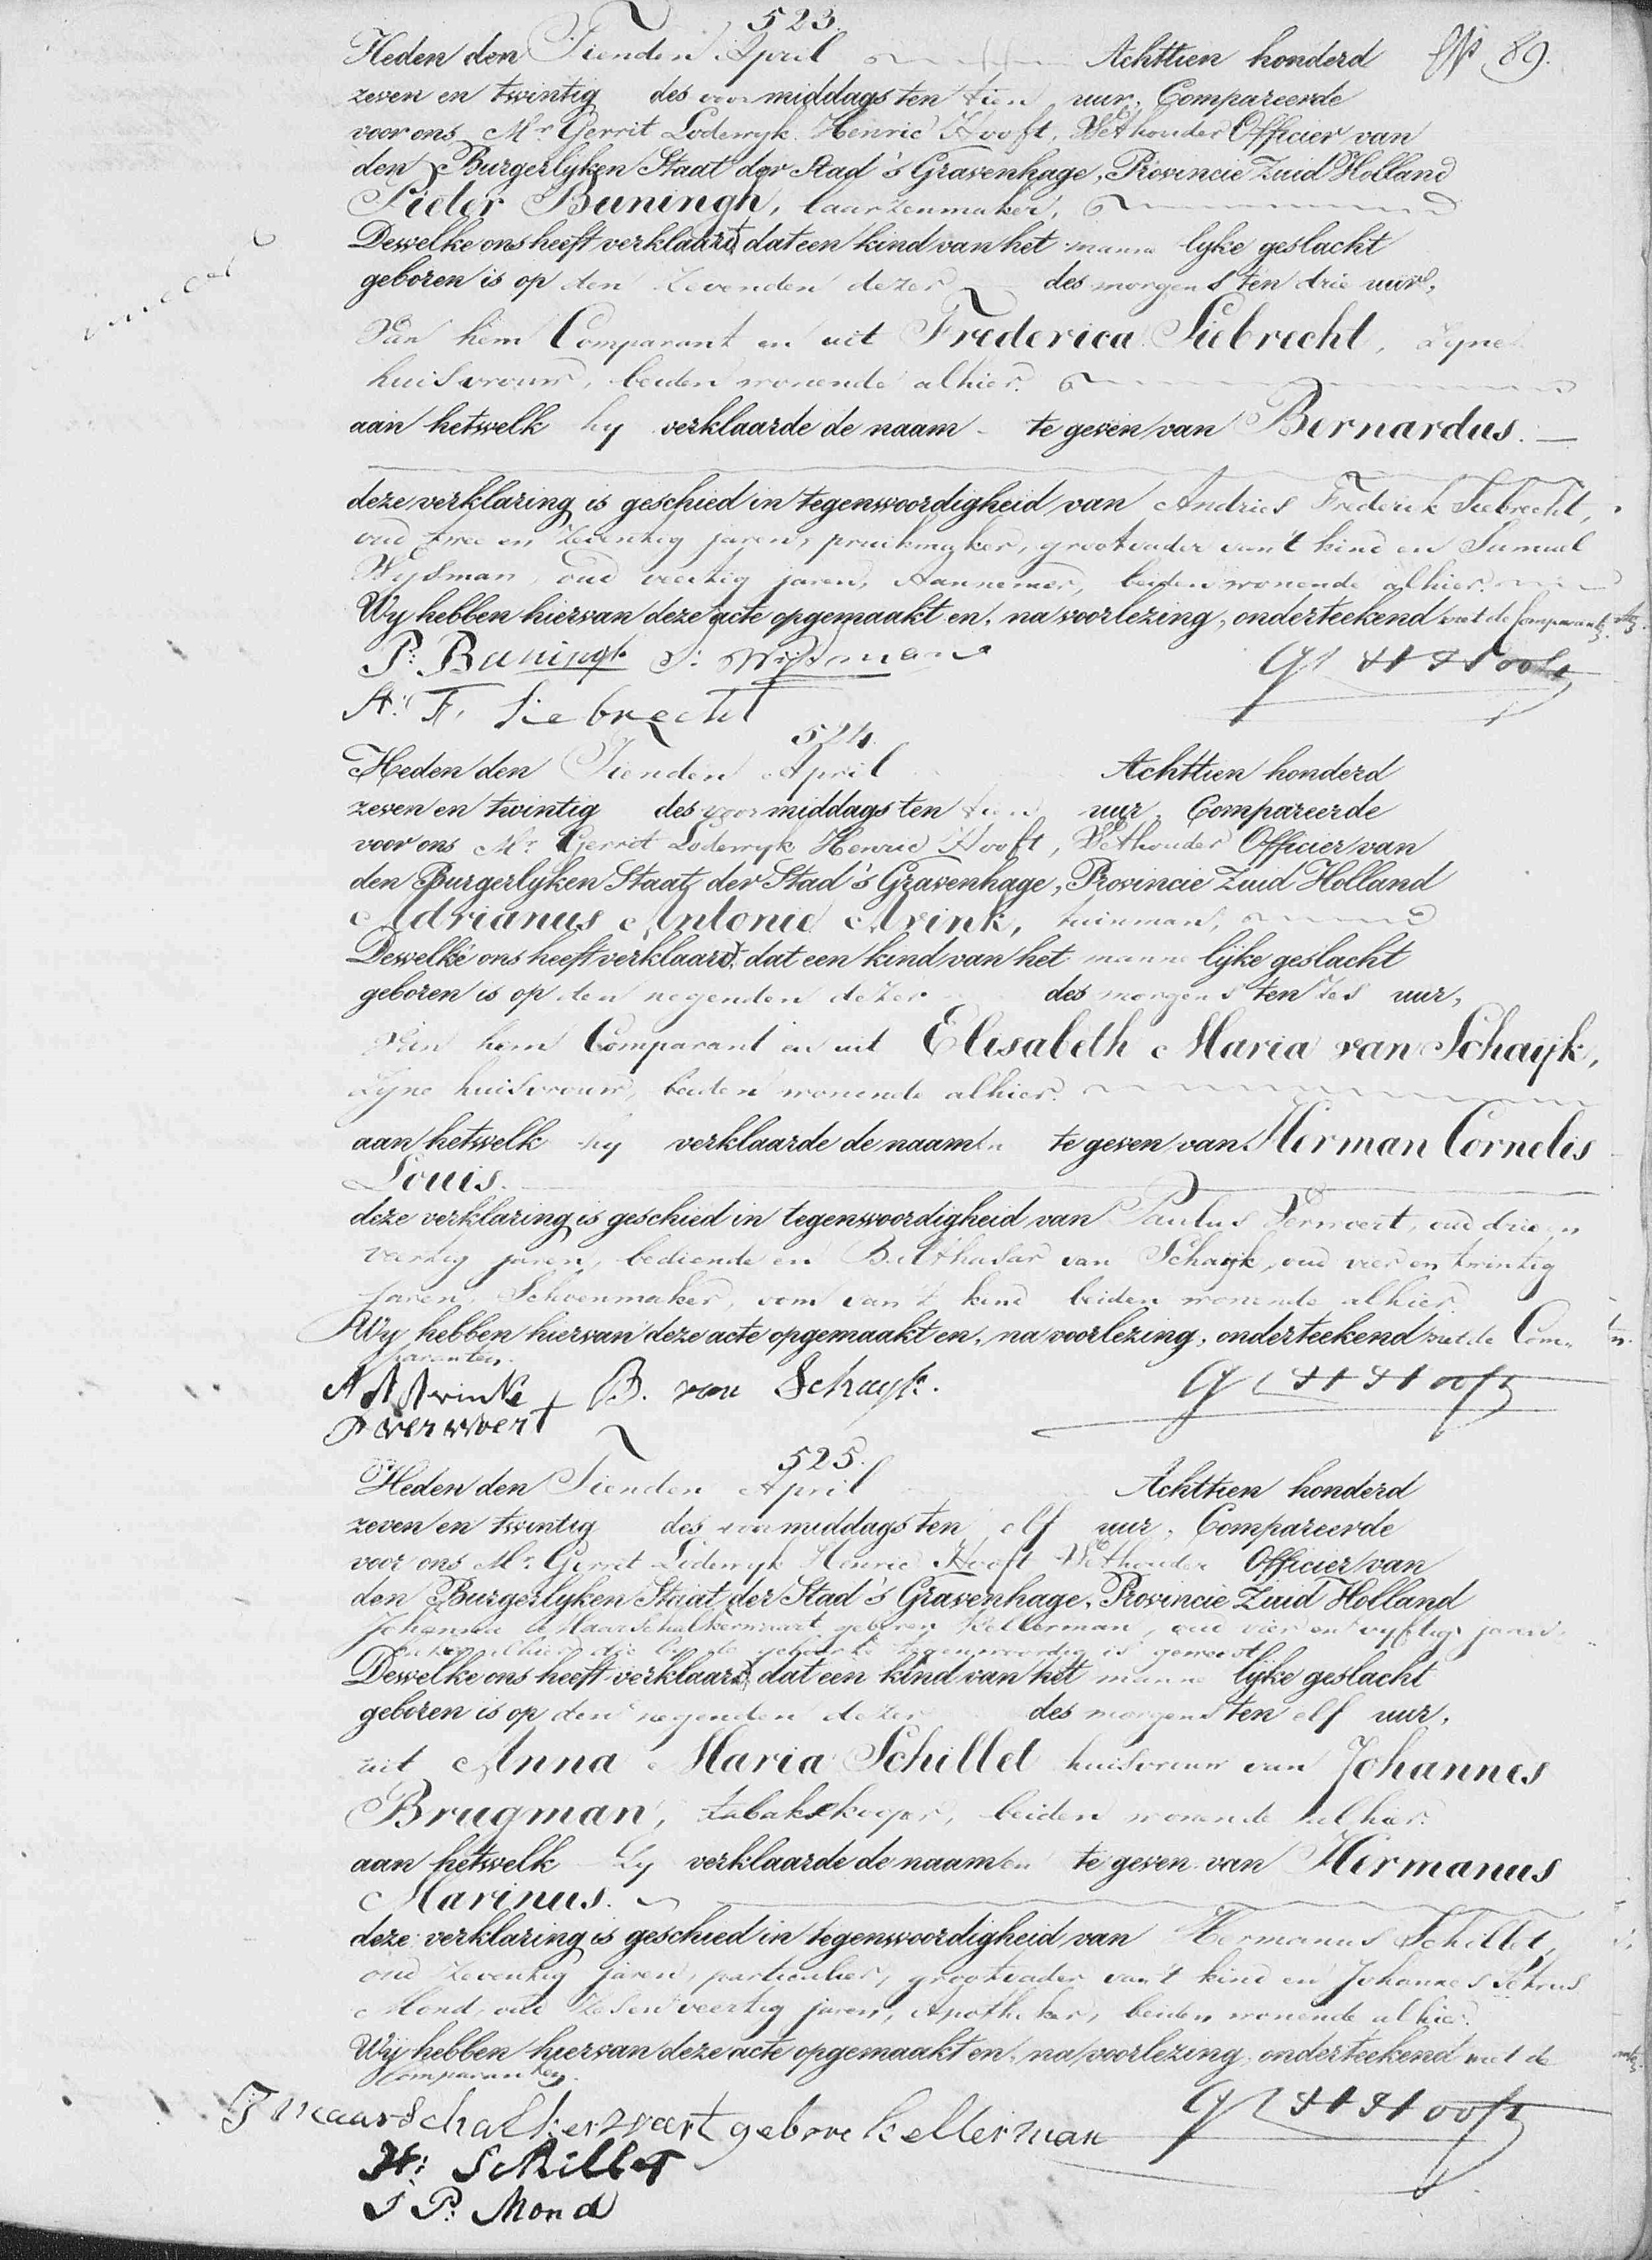 523.
Heden den Tienden April Achttien honderd
89.
zeven en twintig des voormiddags ten tien uur, Compareerde
voor ons Mr Gerrit Lodewyk Henric Hooft, Wethouder Officier van
den Burgerlyken Staat der Stad 's Gravenhage, Provincie Zuid Holland
Pieter Buningh, laarzenmaker,
Dewelke ons heeft verklaard, dat een kind van het mannelyke geslacht
geboren is op den zevenden dezer des morgens ten drie uure,
Van hem Comparant en uit Frederica Siebrecht, zyne
huisvrouw, beiden wonende alhier.
aan hetwelk hy verklaarde de naam te geven van Bernardus.
deze verklaring is geschied in tegenwoordigheid van Andries Frederik Siebrecht,
oud twee en zeventig jaren, pruikmaker, grootvader van 't kind en Samuel
Wysman, oud veertig jaren, Aannemer, beiden wonende alhier.
Wy hebben hiervan deze acte opgemaakt en, na voorlezing, onderteekend met de Comparanten.
P: Buningh S: Wijsman
G L H Hooft
A: F. Siebrecht
524.
Heden den Tienden April Achttien honderd
zeven en twintig des voormiddags ten tien uur, Compareerde
voor ons Mr Gerrit Lodewyk Henric Hooft, Wethouder Officier van
den Burgerlyken Staat der Stad 's Gravenhage, Provincie Zuid Holland
Adrianus Antonie Avink, tuinman,
Dewelke ons heeft verklaard, dat een kind van het mannelijke geslacht
geboren is op den negenden dezer des morgens ten zes uur,
Van hem Comparant en uit Elisabeth Maria van Schayk,
Zyne huisvrouw, beiden wonende alhier.
aan hetwelk hy verklaarde de naamen te geven van Herman Cornelis
Louis.
deze verklaring is geschied in tegenwoordigheid van Paulus Verwoert, oud drie en
veertig jaren, bediende en Balthasar van Schayk, oud vier en twintig
jaren, Schoenmaker, oom van 't kind beiden wonende alhier.
Wy hebben hiervan deze acte opgemaakt en, na voorlezing, onderteekend met de Com-
paranten.
B. van Schayk.
G L H Hooft
P verwoert
525.
Heden den Tienden April Achttien honderd
zeven en twintig des voormiddags ten elf uur, Compareerde
voor ons Mr Gerrit Lodewyk Henric Hooft Wethouder Officier van
den Burgerlyken Staat der Stad 's Gravenhage, Provincie Zuid Holland
Johanna Maarschalkerwaart geboren Kellerman, oud vier en vyftig jaren,
alhier die by de geboorte tegenwoordig is geweest
Dewelke ons heeft verklaard, dat een kind van het mannelijke geslacht
geboren is op den negenden dezer des morgens ten elf uur,
uit Anna Maria Schillet huisvrouw van Johannes
Brugman, tabakskooper, beiden wonende alhier.
aan hetwelk Zy verklaarde de naamen te geven van Hermanus
Marinus.
deze verklaring is geschied in tegenwoordigheid van Hermanus Schillet,
oud zeventig jaren, particulier, grootvader van 't kind en Johannes Petrus
Mond, oud zes en veertig jaren, Apotheker, beiden wonende alhier.
Wij hebben hiervan deze acte opgemaakt en, na voorlezing, onderteekend met de
Comparanten.
J maarschalkerwaert gebore kellerman
G L H Hooft
H: Schillet
J P: Mond